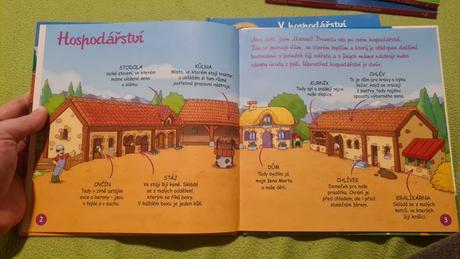 V hospodářství
Hospodářství
STODOLA
Velké stavení, ve kterém
máme uložené seno
a slámu.
KŮLNA
Místo, ve kterém stojí traktor
a ukládáme v něm
potřebné pracovní nástroje.
OVČÍN
Tady v zimě ustájím
ovce a berany – jsou
v teple a v suchu.
STÁJ
Ve stáji žijí koně. Skládá
se z malých oddělení,
kterým se říká boxy.
V každém boxu je jeden kůň.
2
Ahoj děti, jsem Matouš! Provedu vás po svém hospodářství.
Tak se jmenuje dům, ve kterém bydlím a který je obklopen dalšími
budovami: v jedněch žijí zvířata a v jiných máme nástroje nebo
zásoby úrody z polí. Uprostřed hospodářství je dvůr.
KURNÍK
Tady spí a snášejí vejce
naše slepice.
CHLÉV
To je dům pro krávy a býka.
Večer, když se vracejí
z pastvy, tady najdou
spoustu výborného sena.
DŮM
Tady bydlím já,
moje žena Marta
a naše děti.
CHLÍVEK
Domeček pro naše
prasátka. Chrání je
před chladem, ale i před
slunečním žárem.
KRÁLÍKÁRNA
Skládá se z malých
kotců, ve kterých
žijí králíci.
3